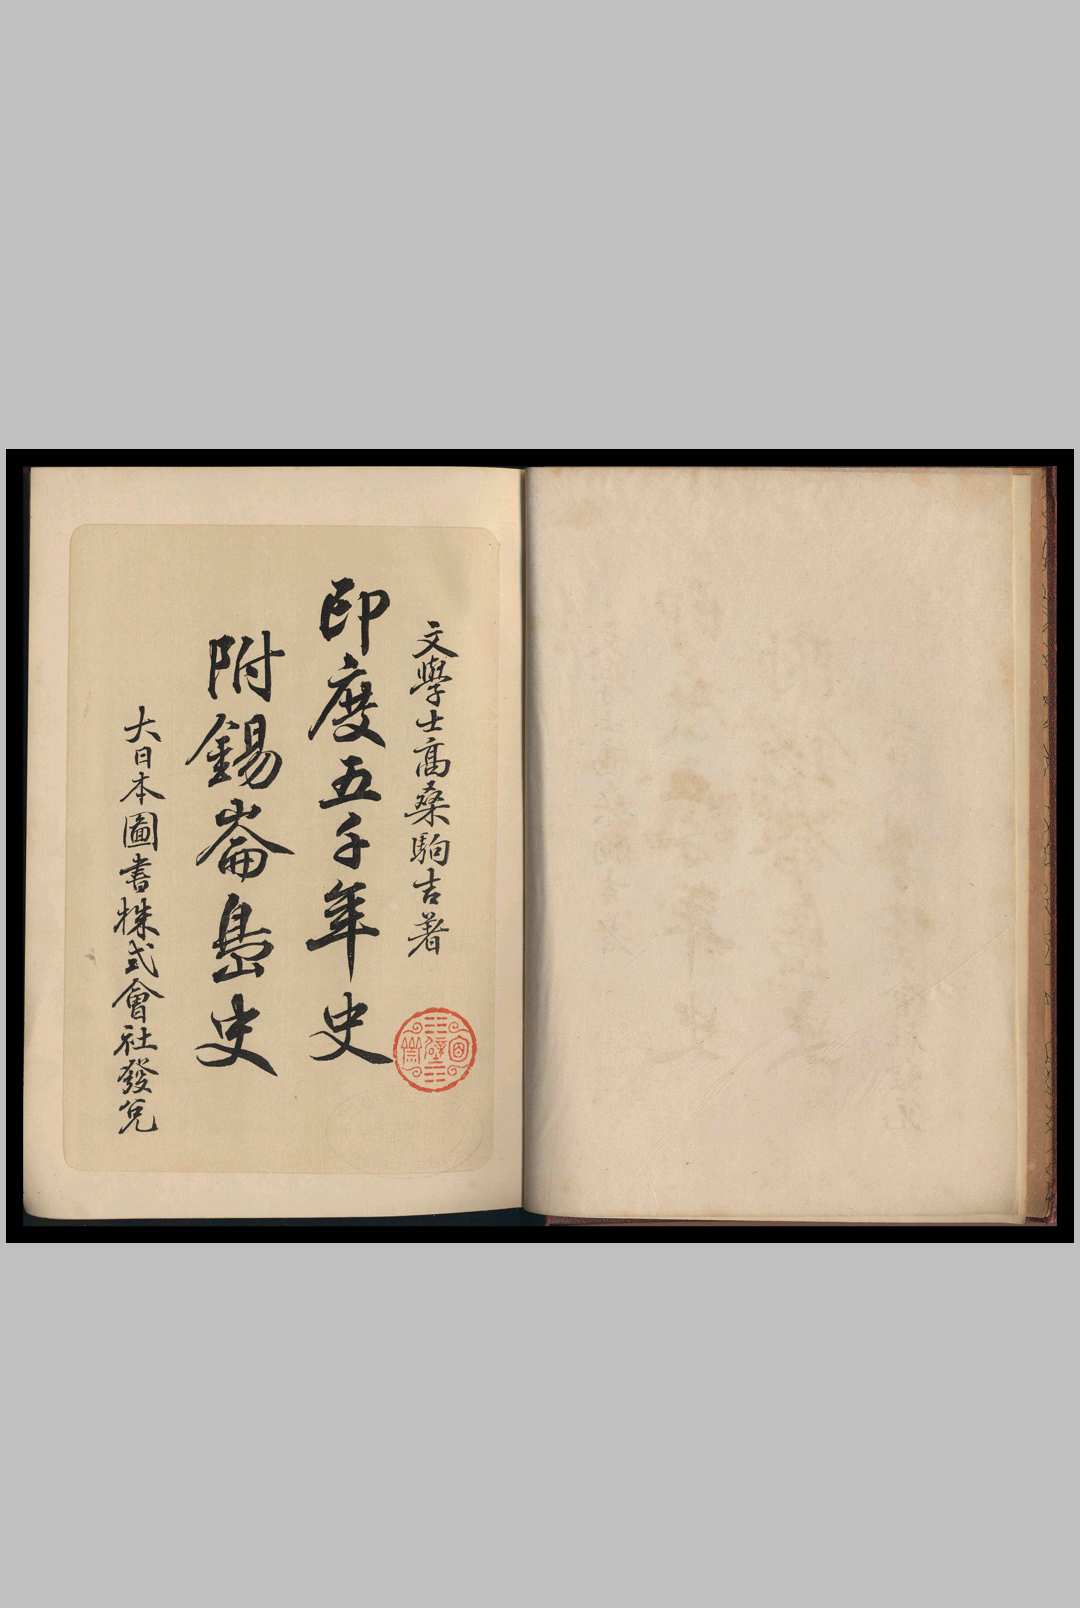 文學士高桑駒吉著
印度五千年史
附錫崙島史
大日本圖書株式會社發兌